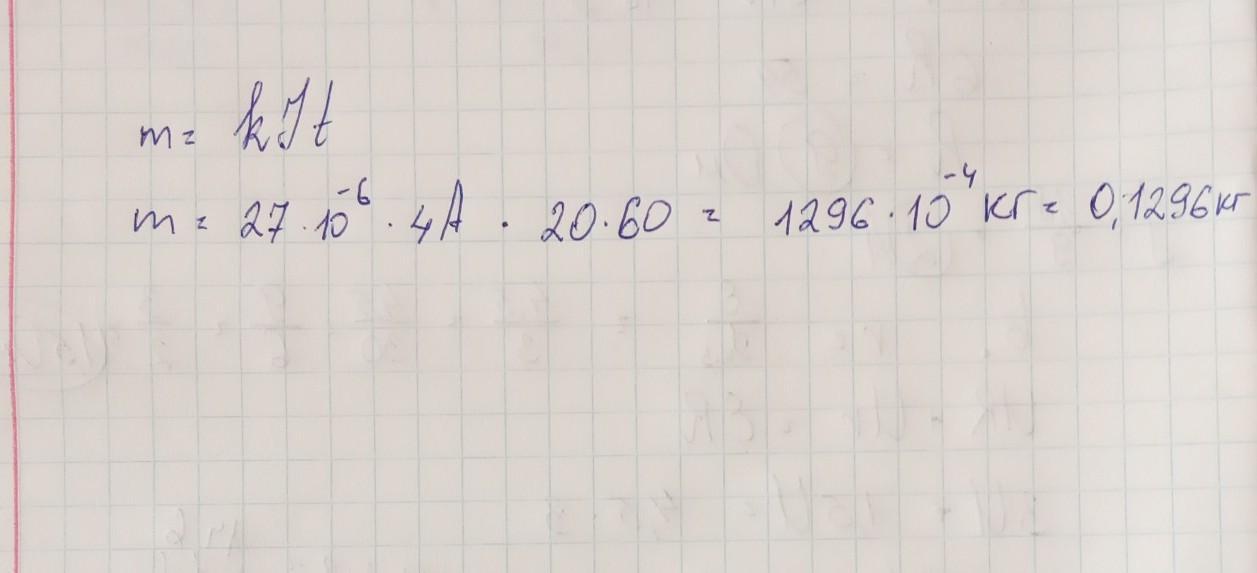 m = kIt
m = 27 · 10⁻⁶ · 4A · 20 · 60 = 1296 · 10⁻⁴ кг = 0,1296 кг